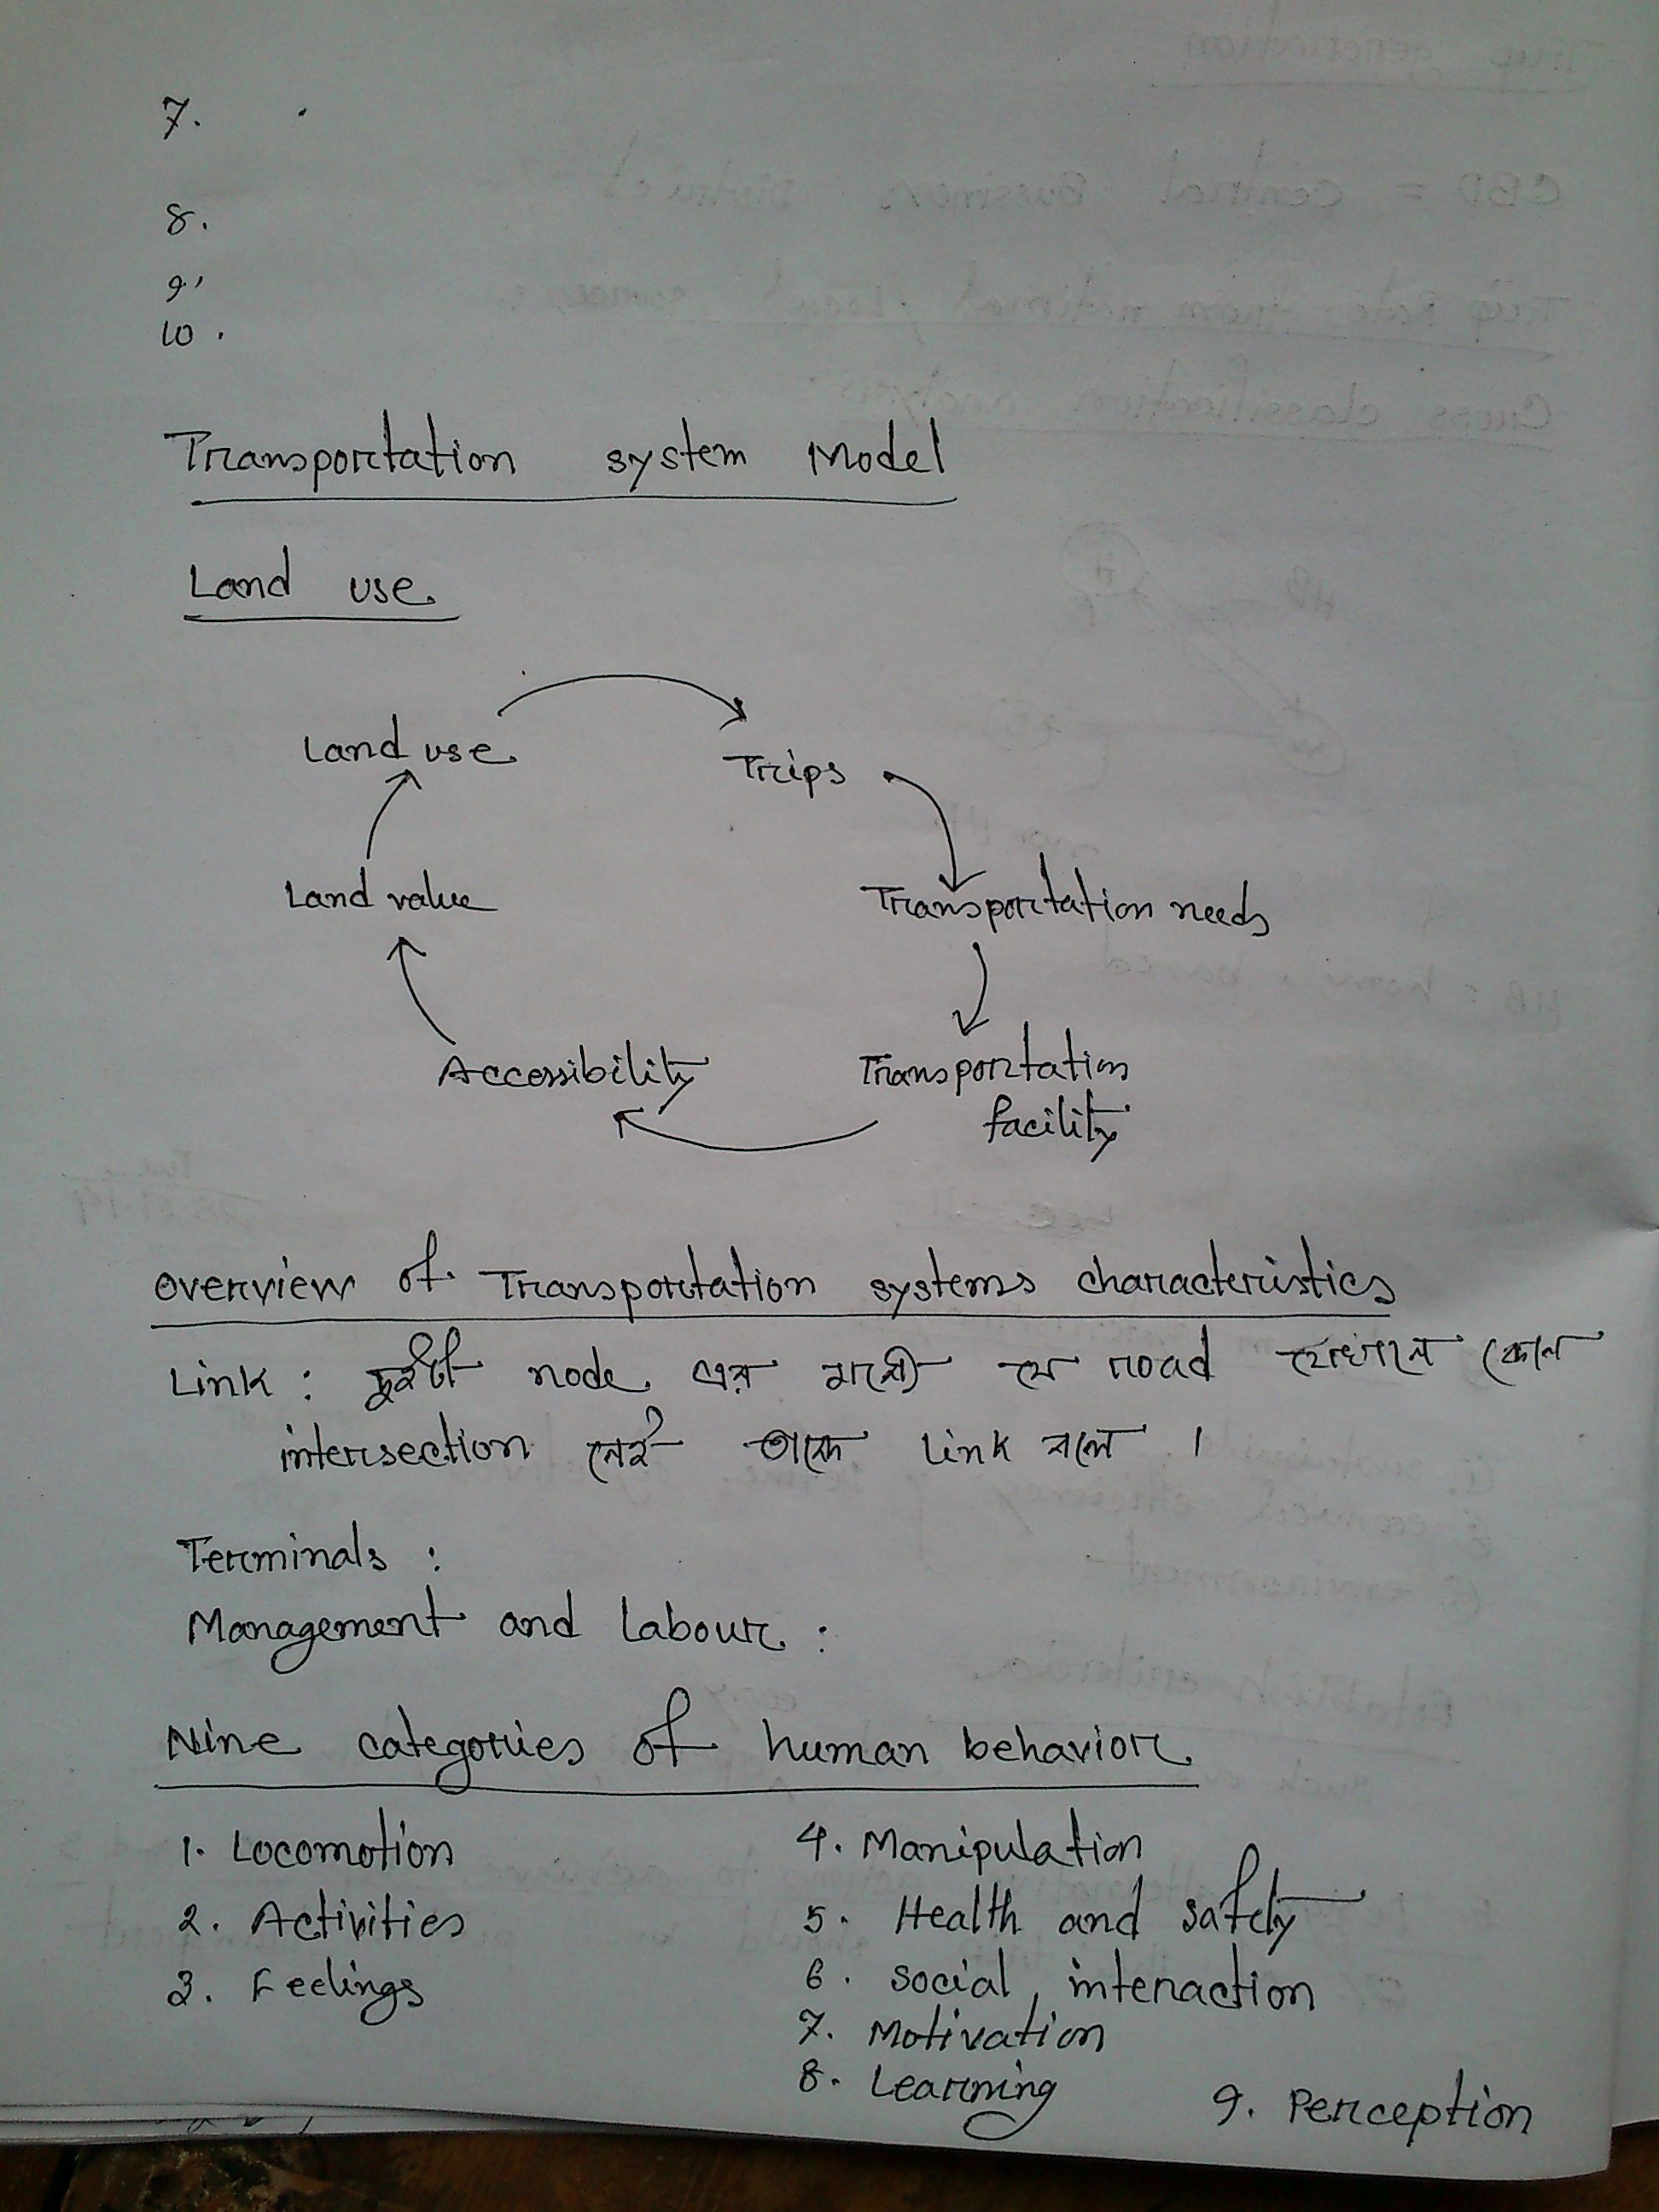 7.
8.
9.
10.
Transportation system Model
Land use
Land use
Trips
Land value
Transportation needs
Accessibility
Transportation
facility
Overview of Transportation systems characteristics
Link : দুইটা node এর মধ্যে যে road যেখানে কোন
intersection নেই তাকে Link বলে ।
Terminals :
Management and Labour :
Nine categories of human behavior
1. Locomotion
2. Activities
3. Feelings
4. Manipulation
5. Health and safety
6. social interaction
7. Motivation
8. Learning
9. Perception